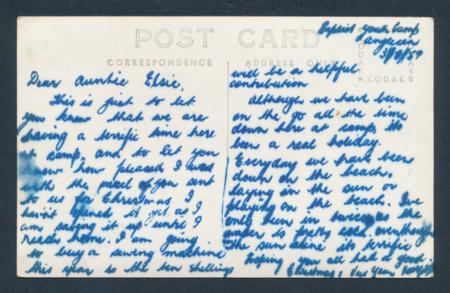 POST CARD
CORRESPONDENCE
ADDRESS ONLY
KODAK
Baptist youth camp
3/1/59
Dear Auntie Elsie,
This is just to let
you know that we are
having a terrific time here
at camp, and to let you
know how pleased I was
with the parcel you sent
to us for Christmas. I
haven't opened it yet as I
am saving it up until I
reach home. I am going
to buy a sewing machine
this year so the ten shillings
will be a helpful
contribution
Although we have been
on the go all the time
down here at camp, it's
been a real holiday.
Everyday we have been
down on the beach,
laying in the sun or
playing on the beach. I've
only been in twice as the
water is pretty cold. even though
the sun shine its terrific
Hoping you all had a good
Christmas & New Year